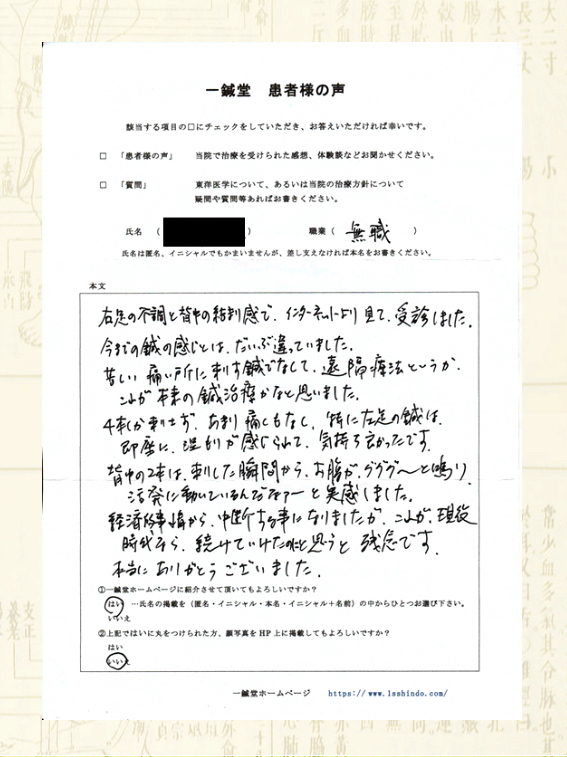 一鍼堂 患者様の声
該当する項目の□にチェックをしていただき、お答えいただければ幸いです。
□ 「患者様の声」 当院で治療を受けられた感想、体験談などお聞かせください。
□ 「質問」 東洋医学について、あるいは当院の治療方針について
疑問や質問等あればお書きください。
氏名 （ ） 職業（ 無職 ）
氏名は匿名、イニシャルでもかまいませんが、差し支えなければ本名をお書きください。
本文
右足の不調と背中の結刺感で、インターネットより見て、受診しました。
今までの鍼の感じとは、だいぶ違っていました。
苦しい痛い所に刺す鍼でなくして、遠隔療法というか、
これが本来の鍼治療かなと思いました。
4本しか刺さず、あまり痛くもなし、特に左足の鍼は、
即座に、温もりが感じられて、気持ち良かったです。
背中の2本は、刺した瞬間から、お腹が、グググ〜と鳴り、
活発に動いているんだなァーと実感しました。
経済的事情から、中断する事になりましたが、これが、現役
時代なら、続けていけたのにと思うと残念です。
本当にありがとうございました。
①一鍼堂ホームページに紹介させて頂いてもよろしいですか？
はい …氏名の掲載を（匿名・イニシャル・本名・イニシャル＋名前）の中からひとつお選び下さい。
いいえ
②上記ではいに丸をつけられた方、顔写真をHP上に掲載してもよろしいですか？
はい
いいえ
一鍼堂ホームページ https://www.1sshindo.com/